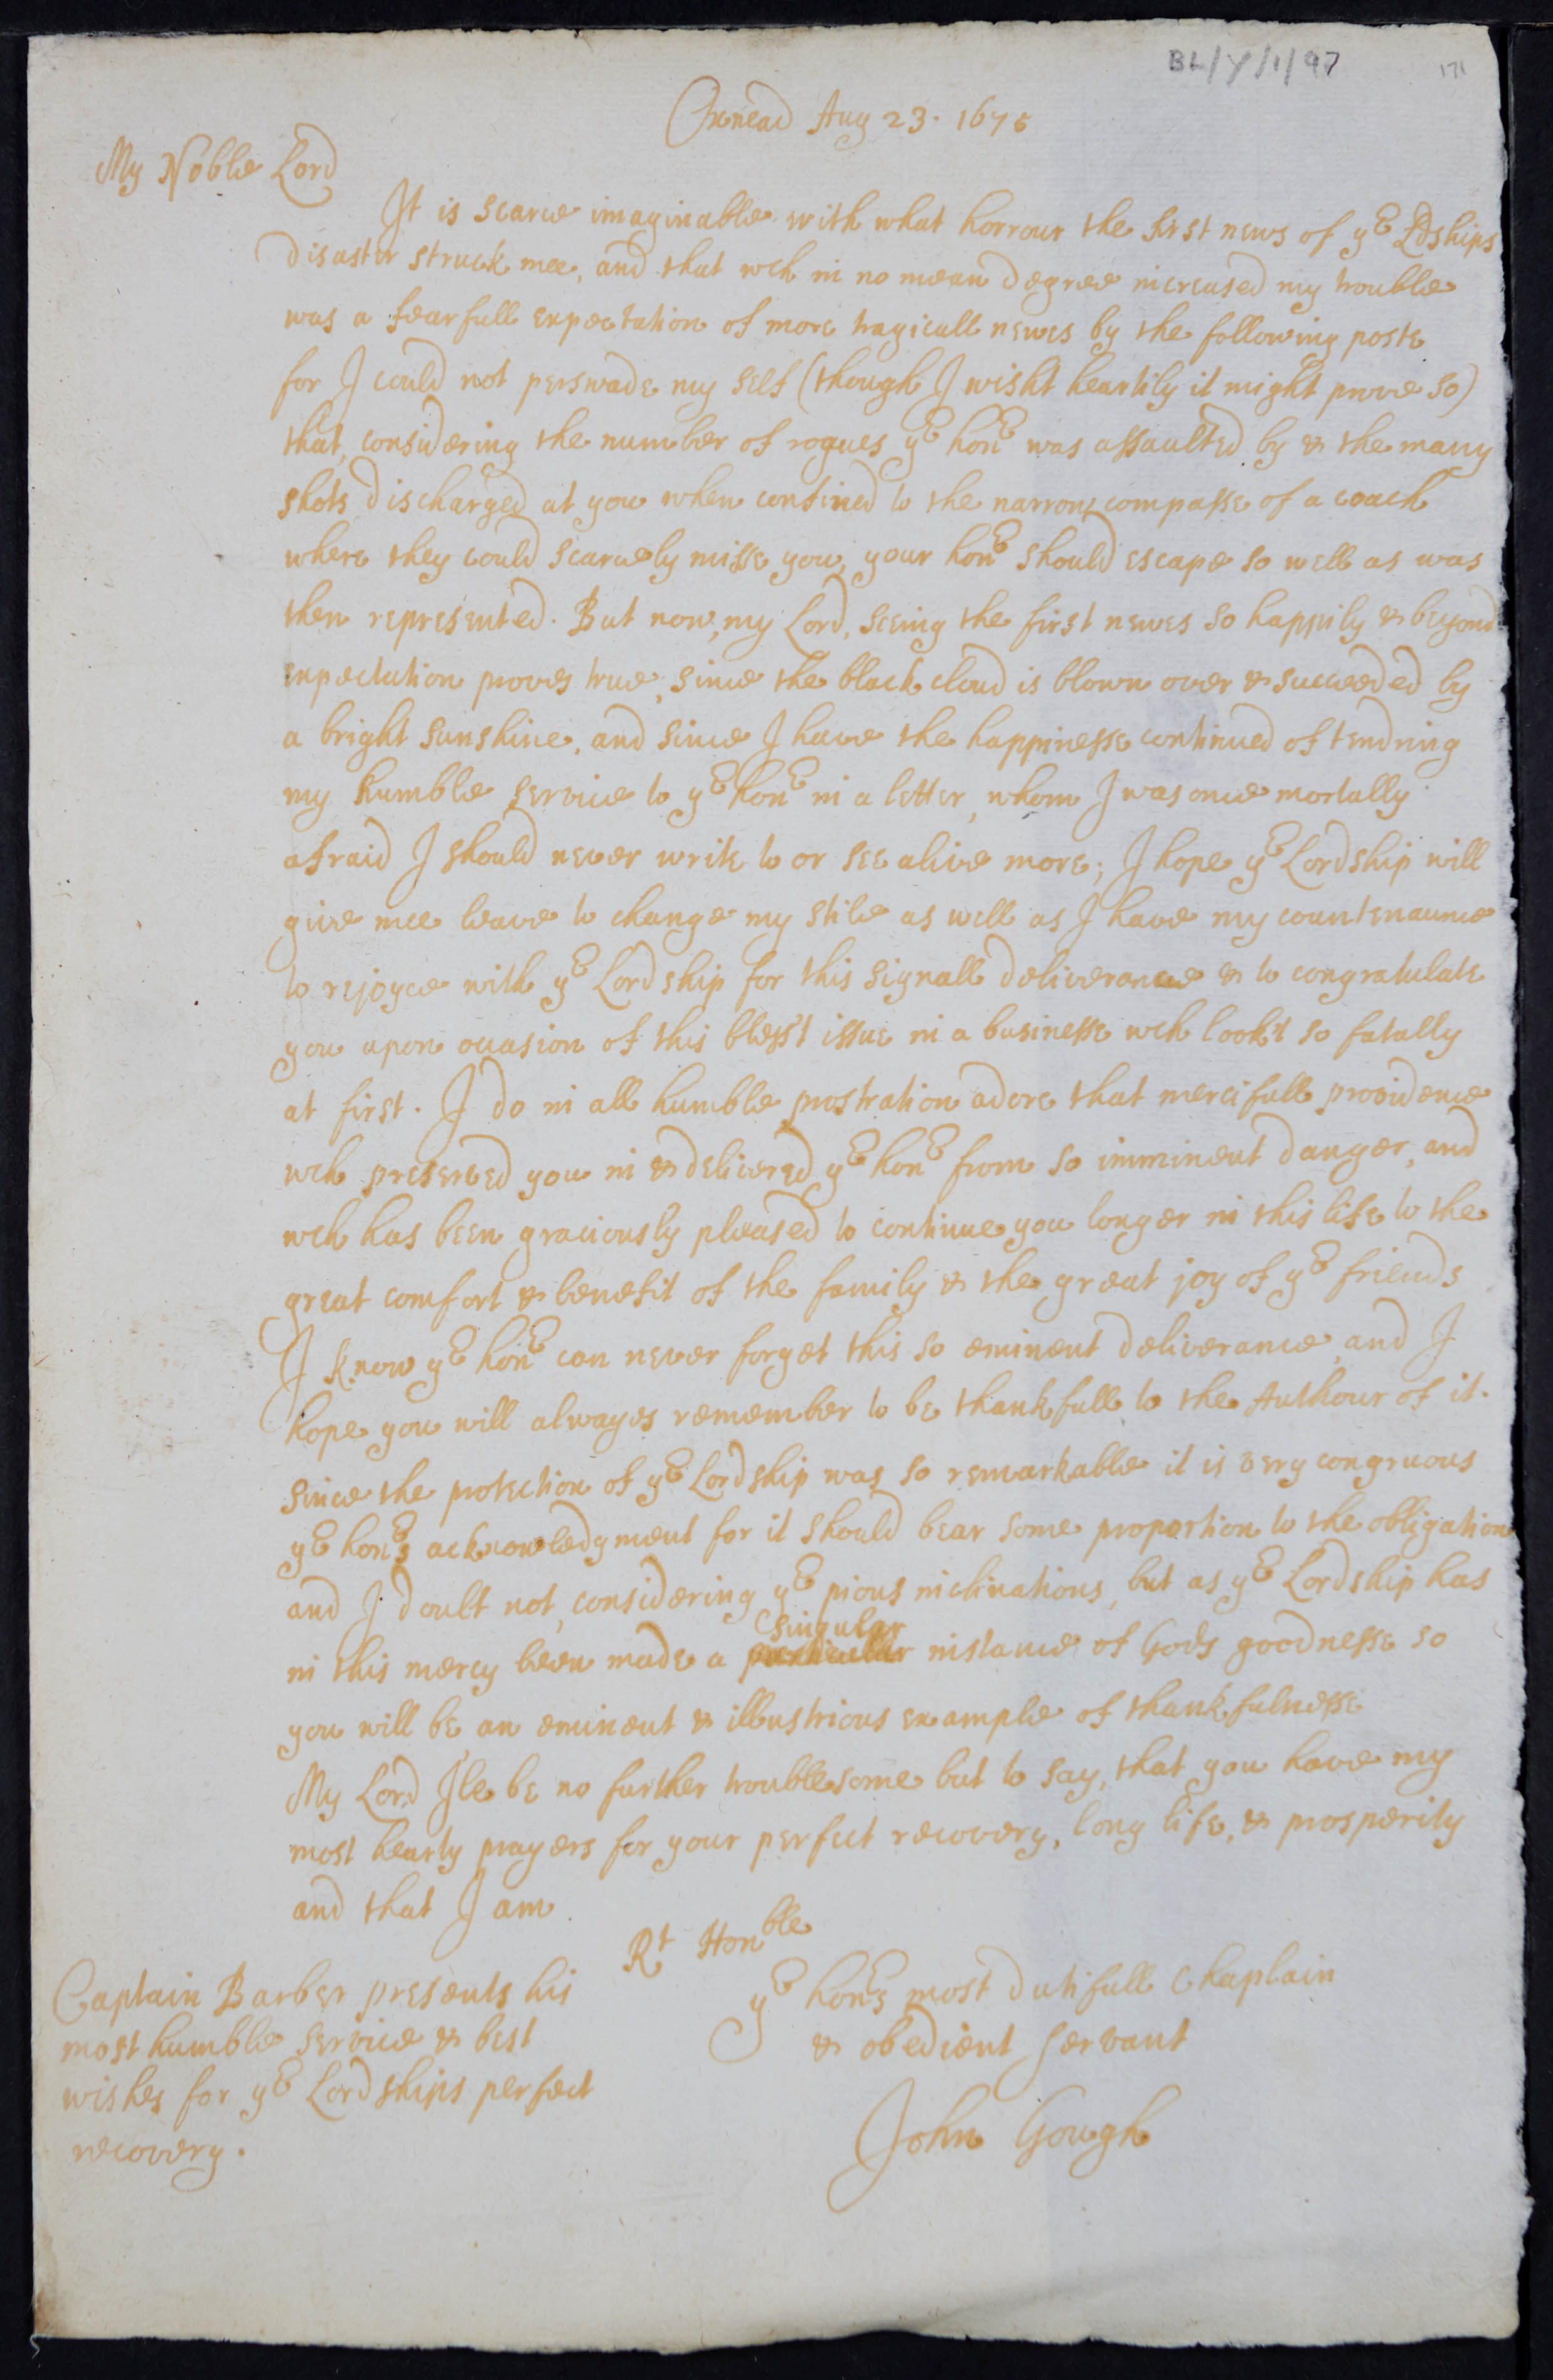 BL/Y/1/97
171
Oxnead Aug 23. 1675
My Noble Lord
It is scarce imaginable with what horrour the first news of yr Ldships
disaster struck mee, and that wch in no mean degree increased my trouble
was a fearfull expectation of more tragicall newes by the following poste
for I could not perswade my self (though I wisht heartily it might prove so)
that, considering the number of rogues yr honr was assaulted by & the many
shots discharged at you when confined to the narrow compasse of a coach
where they could scarcely misse you, your honr should escape so well as was
then represented. But now, my Lord, seeing the first newes so happily & beyond
expectation proves true, since the black cloud is blown over & succeeded by
a bright sunshine, and since I have the happinesse continued of tendring
my humble service to yr honr in a letter, whom I was once mortally
afraid I should never write to or see alive more; I hope yr Lordship will
give mee leave to change my stile as well as I have my countenaunce
to rejoyce with yr Lordship for this signall deliverance & to congratulate
you upon occasion of this bless't issue in a businesse wch look't so fatally
at first. I do in all humble prostration adore that mercifull providence
wch preserved you in & delivered yr honr from so imminent danger, and
wch has been graciously pleased to continue you longer in this life to the
great comfort & benefit of the family & the great joy of yr friends
I know yr honr can never forget this so eminent deliverance, and I
hope you will alwayes remember to be thankfull to the Authour of it.
since the protection of yr Lordship was so remarkable it is very congruous
yr honrs acknowledgment for it should bear some proportion to the obligation
and I doubt not, considering yr pious inclinations, but as yr Lordship has
singular
in this mercy been made a particular instance of Gods goodnesse so
you will be an eminent & illustrious example of thankfulnesse
My Lord I'le be no further troublesome but to say, that you have my
most hearty prayers for your perfect recovery, long life, & prosperity
and that I am
Rt Honble
yr honrs most dutifull Chaplain
& obedient servant
John Gough
Captain Barber presents his
most humble service & best
wishes for yr Lordships perfect
recovery.